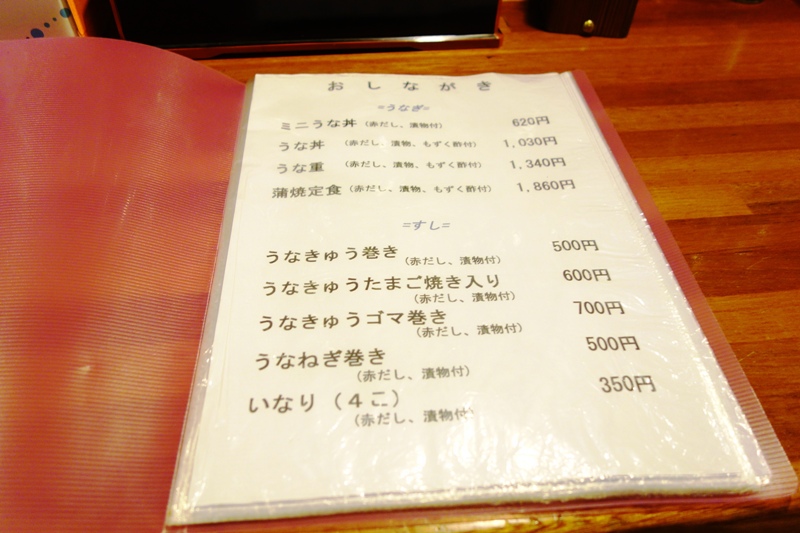 おしながき
=うなぎ=
ミニうな丼（赤だし、漬物付） 620円
うな丼（赤だし、漬物、もずく酢付） 1,030円
うな重（赤だし、漬物、もずく酢付） 1,340円
蒲焼定食（赤だし、漬物、もずく酢付） 1,860円
=すし=
うなきゅう巻き 500円
（赤だし、漬物付）
うなきゅうたまご焼き入り 600円
（赤だし、漬物付）
うなきゅうゴマ巻き 700円
（赤だし、漬物付）
うなねぎ巻き 500円
（赤だし、漬物付）
いなり（４こ） 350円
（赤だし、漬物付）